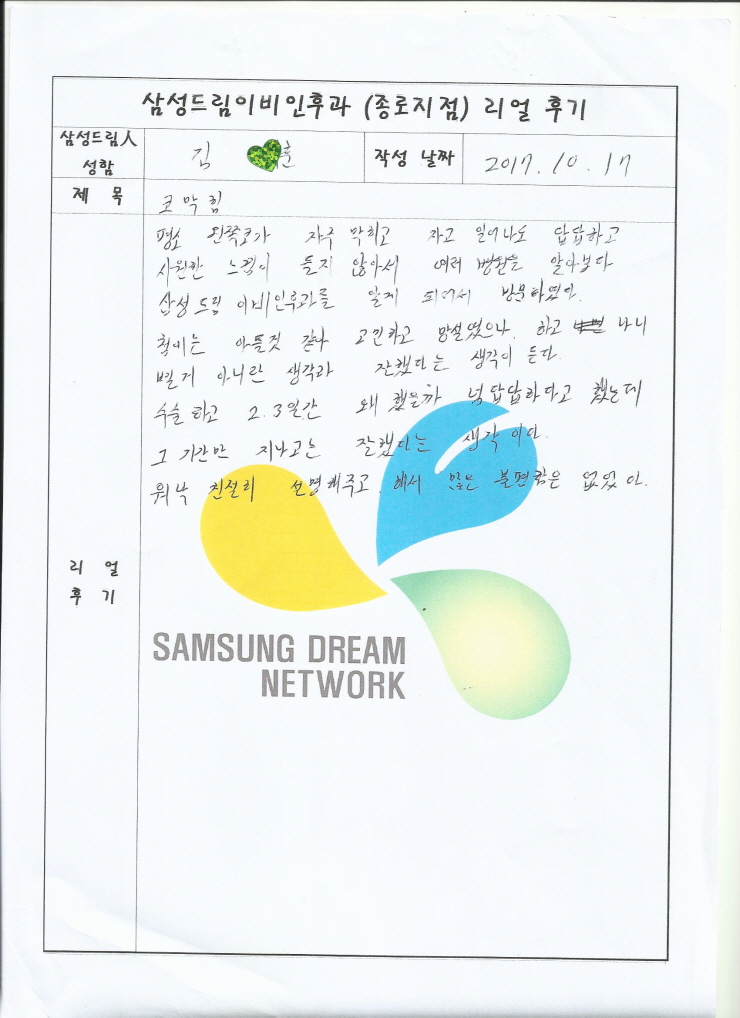 삼성드림이비인후과 (종로지점) 리얼 후기
삼성드림人
성함
김 훈
작성 날짜
2017. 10. 17
제 목
코막힘
평소 왼쪽코가 자주 막히고 자고 일어나도 답답하고
시원한 느낌이 들지 않아서 여러 병원을 알아보다
삼성드림 이비인후과를 알게 되어서 방문하였다.
첨에는 아플것 같아 고민하고 망설였으나. 하고 나니
별게 아니란 생각과 잘했다는 생각이 든다.
수술하고 2. 3일간 왜 했을까 넘답답하다고 했는데
그 기간만 지나고는 잘했다는 생각이다.
워낙 친절히 설명해주고. 해서 많은 불편함은 없었다.
리 얼
후 기
SAMSUNG DREAM
NETWORK